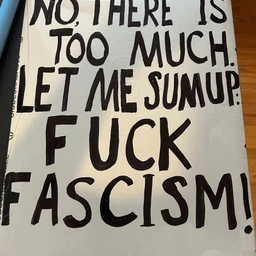 NO, THERE IS
TOO MUCH.
LET ME SUM UP:
FUCK
FASCISM!